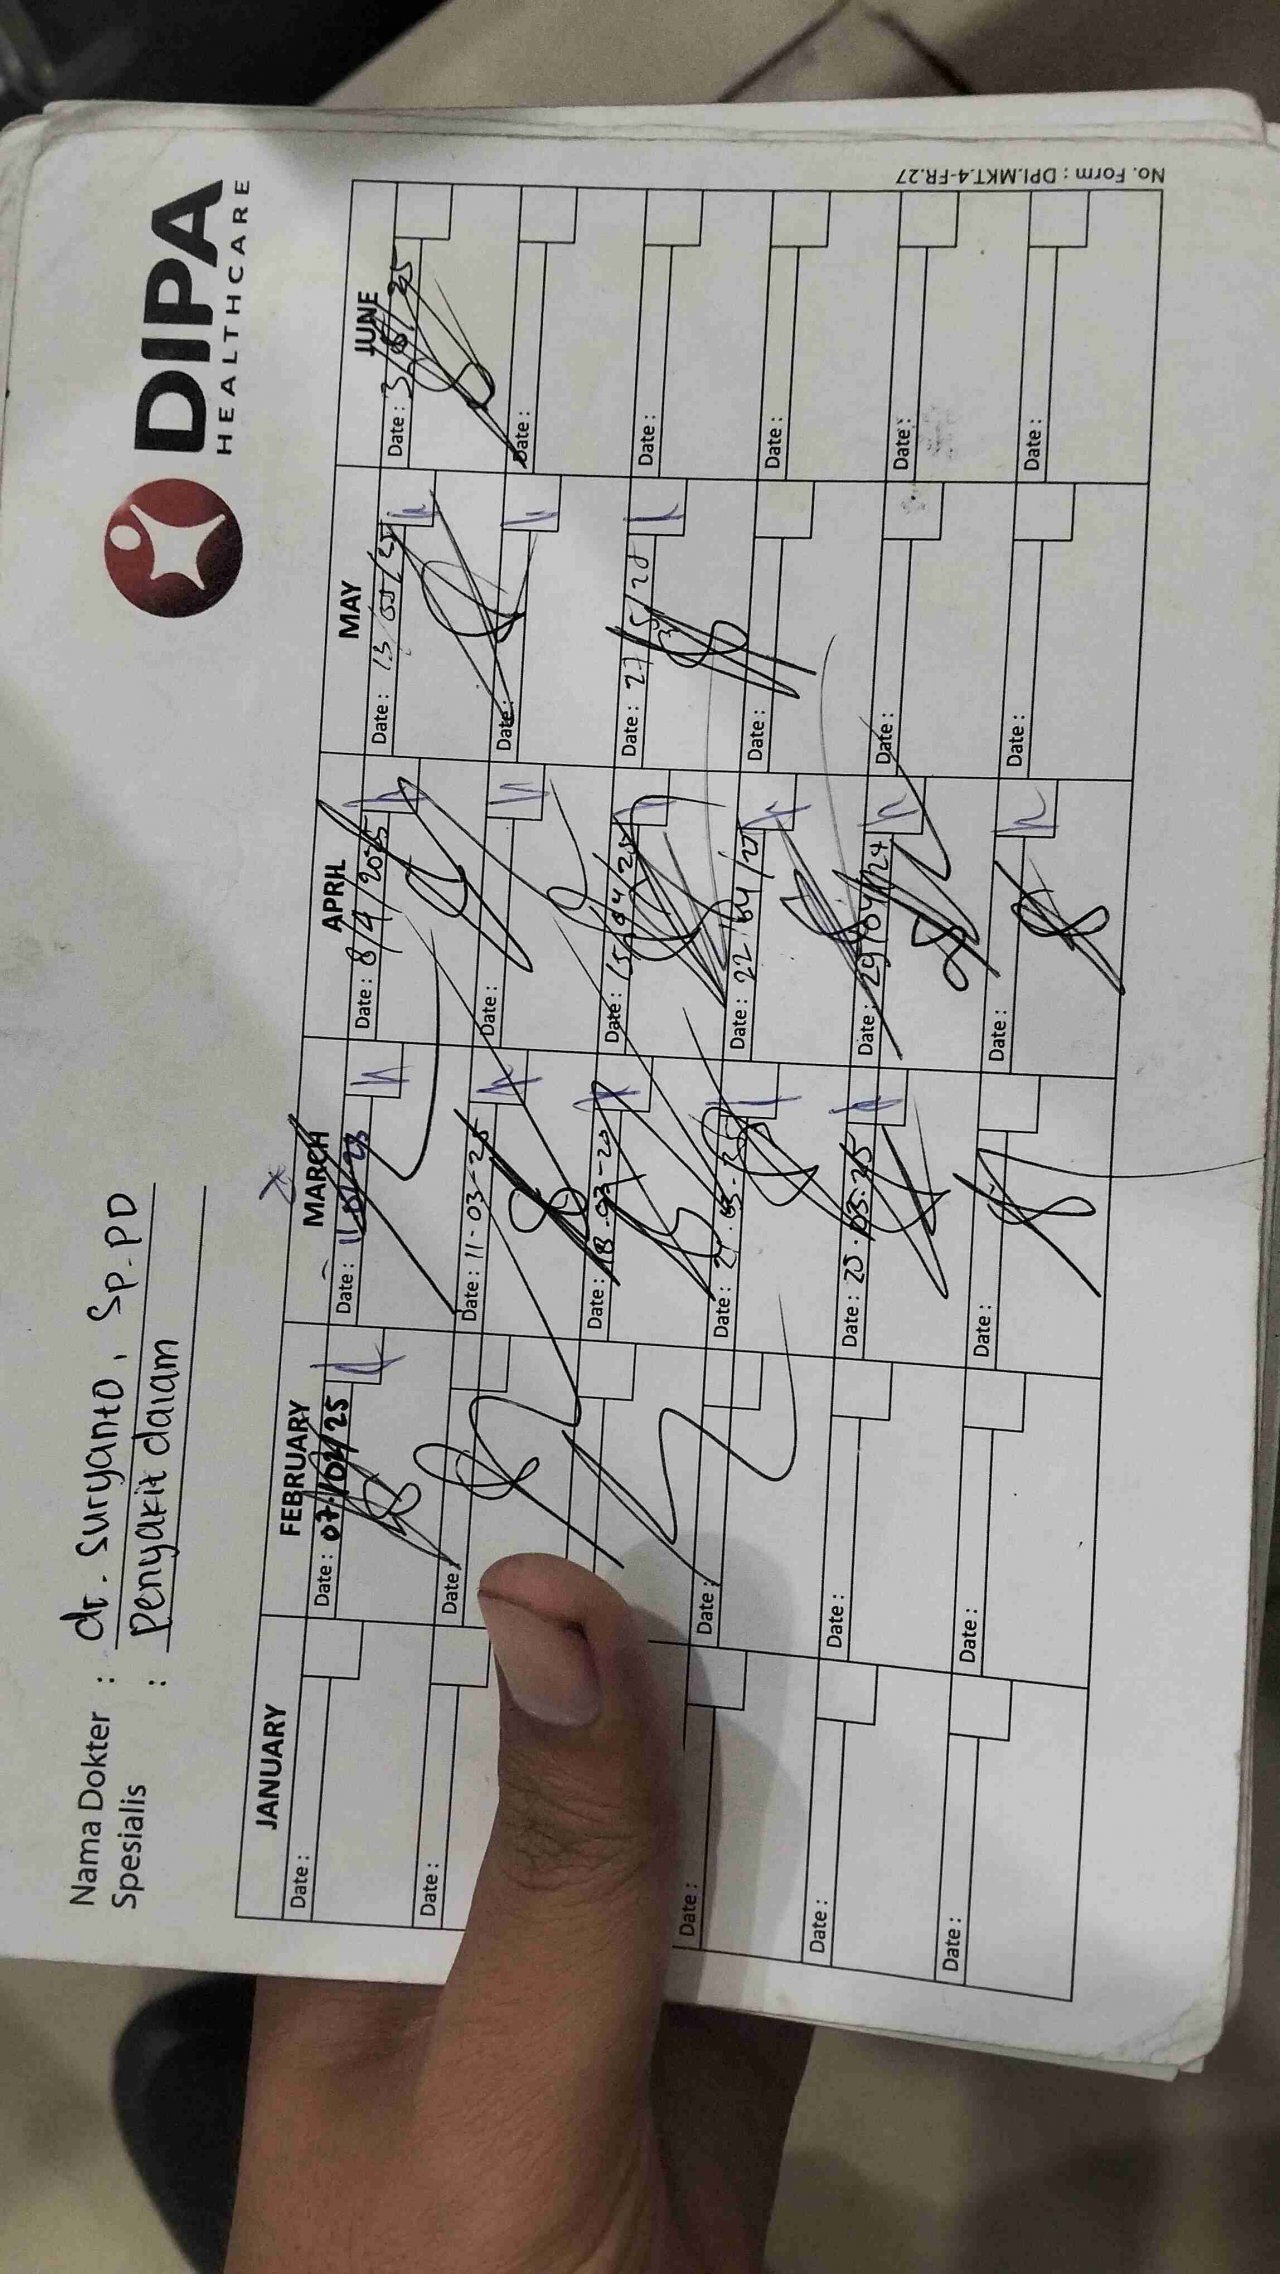 DIPA
HEALTHCARE
Nama Dokter : dr. Suryanto, Sp.PD
Spesialis : Penyakit dalam
JANUARY FEBRUARY MARCH APRIL MAY JUNE
Date : Date : 07/02/25 Date : Date : 8/4/2025 Date : 13/05/25 Date : 3/6/25
Date : Date : Date : 11-03-25 Date : Date : Date :
Date : Date : 15/04/25 Date : 27/5/25 Date :
Date : Date : Date : Date : 22/04/25 Date : Date :
Date : Date : Date : 25.03.25 Date : 29/04/24 Date : Date :
Date : Date : Date : Date : Date : Date :
No. Form : DPI.MKT.4-FR.27